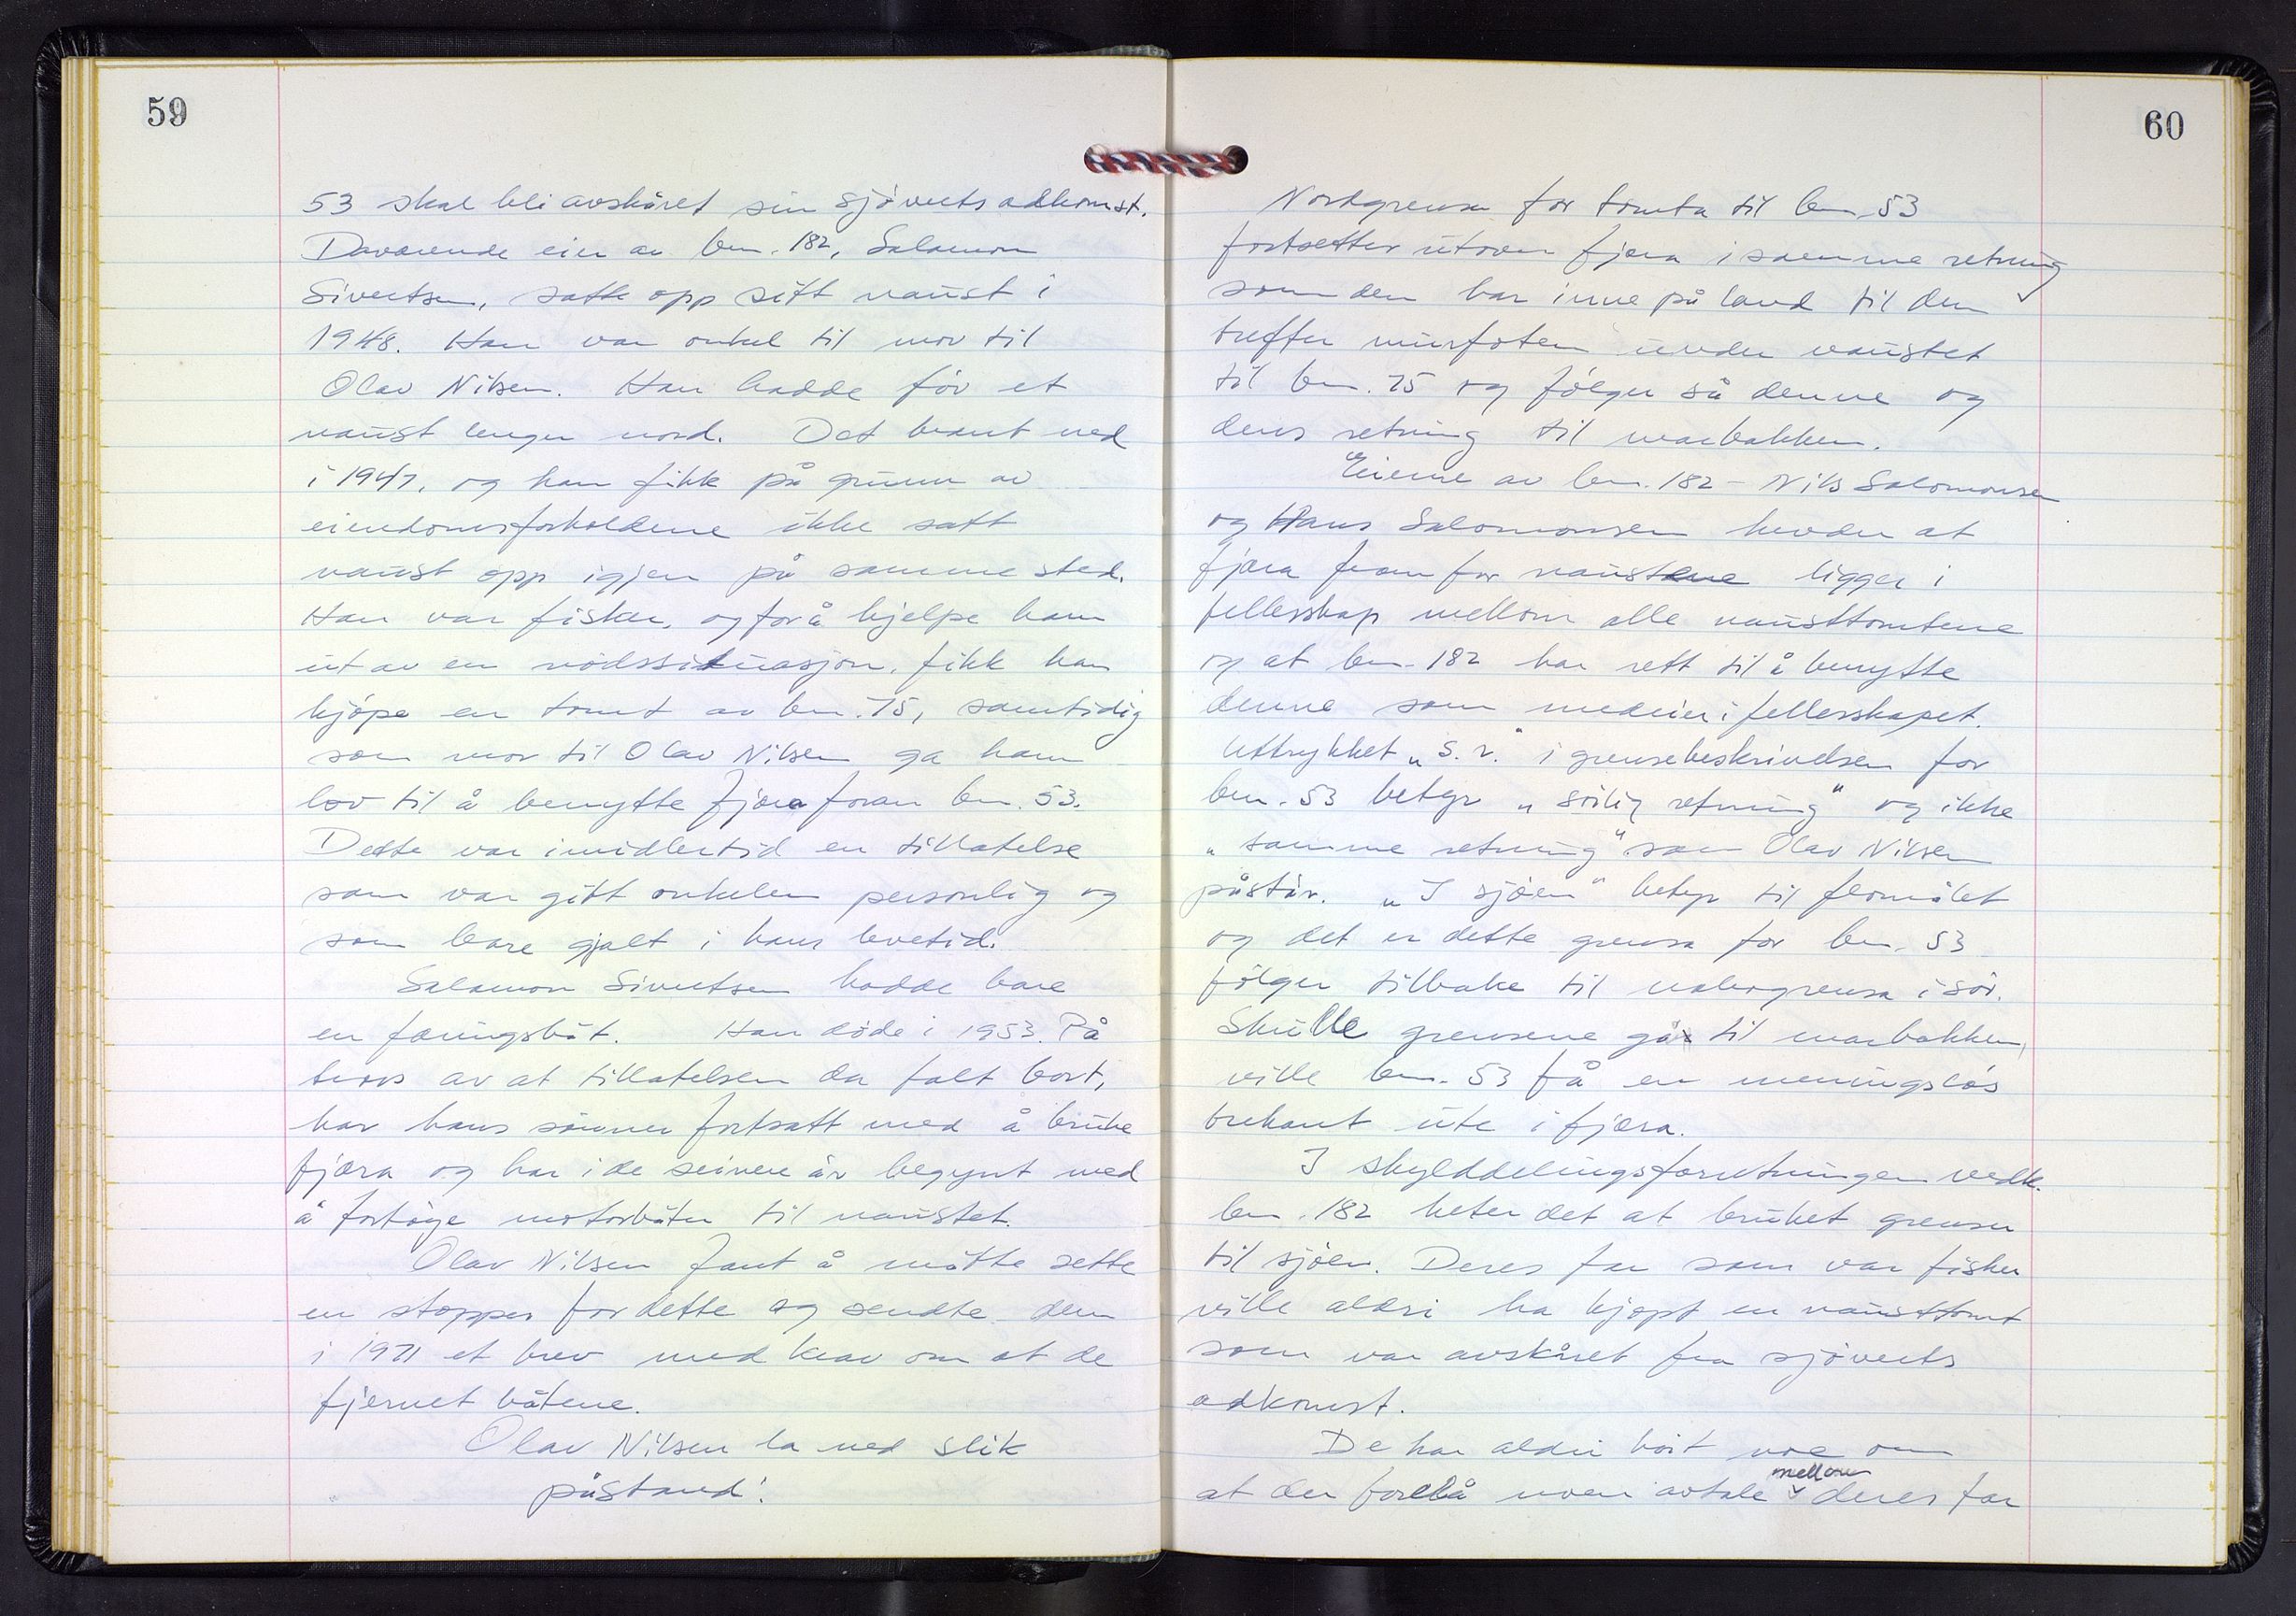 59
53 skal bli avskåret sin sjöverts adkomst.
Davarende eier av bnr. 182, Salamon
Sivertsen, satte opp sitt naust i
1948. Han var onkel til mor til
Olav Nilsen. Han hadde för et
naust lenger nord. Det brant ned
i 1947, og han fikk på grunn av
eiendomsforholdene ikke satt
naust opp igjen på samme sted.
Han var fisker, og for å hjelpe ham
ut av en nödssituasjon, fikk han
kjöpe en tomt av bnr. 75, samtidig
som mor til Olav Nilsen ga ham
lov til å benytte fjæra foran bnr. 53.
Dette var imidlertid en tillatelse
som var gitt onkelen personlig og
som bare gjalt i hans levetid.
Salamon Sivertsen hadde bare
en færingsbåt. Han döde i 1953. På
tross av at tillatelsen da falt bort,
har hans sönner fortsatt med å bruke
fjæra og har i de seinere år begynt med
å fortöye motorbåter til naustet.
Olav Nilsen fant å måtte sette
en stopper for dette og sendte dem
i 1971 et brev med krav om at de
fjernet båtene.
Olav Nilsen la ned slik
påstand:
60
Nordgrensa for tomta til bnr. 53
fortsetter utover fjæra i samme retning
som den har inne på land til den
treffer murfoten under naustet
til bnr. 75 og fölger så denne og
dens retning til marbakken.
Eierne av bnr. 182 - Nils Salomonsen
og Hans Salomonsen hevder at
fjæra framfor naustene ligger i
fellesskap mellom alle nausttomtene
og at bnr. 182 har rett til å benytte
denne som medeier i fellesskapet.
Uttrykket „s. r." i grensebeskrivelsen for
bnr. 53 betyr „sörlig retning" og ikke
„samme retning" som Olav Nilsen
påstår. „I sjöen" betyr til flomålet
og det er dette grensa for bnr. 53
fölger tilbake til nabogrensa i sör.
Skulle grensene gå til marbakken,
ville bnr. 53 få en meningslös
trekant ute i fjæra.
I skylddelingsforretningen vedk.
bnr. 182 heter det at bruket grenser
til sjöen. Deres far som var fisker
ville aldri ha kjøpt en nausttomt
som var avskåret fra sjöverts
adkomst.
De har aldri hört noe om
at der forelå noen avtale mellom deres far